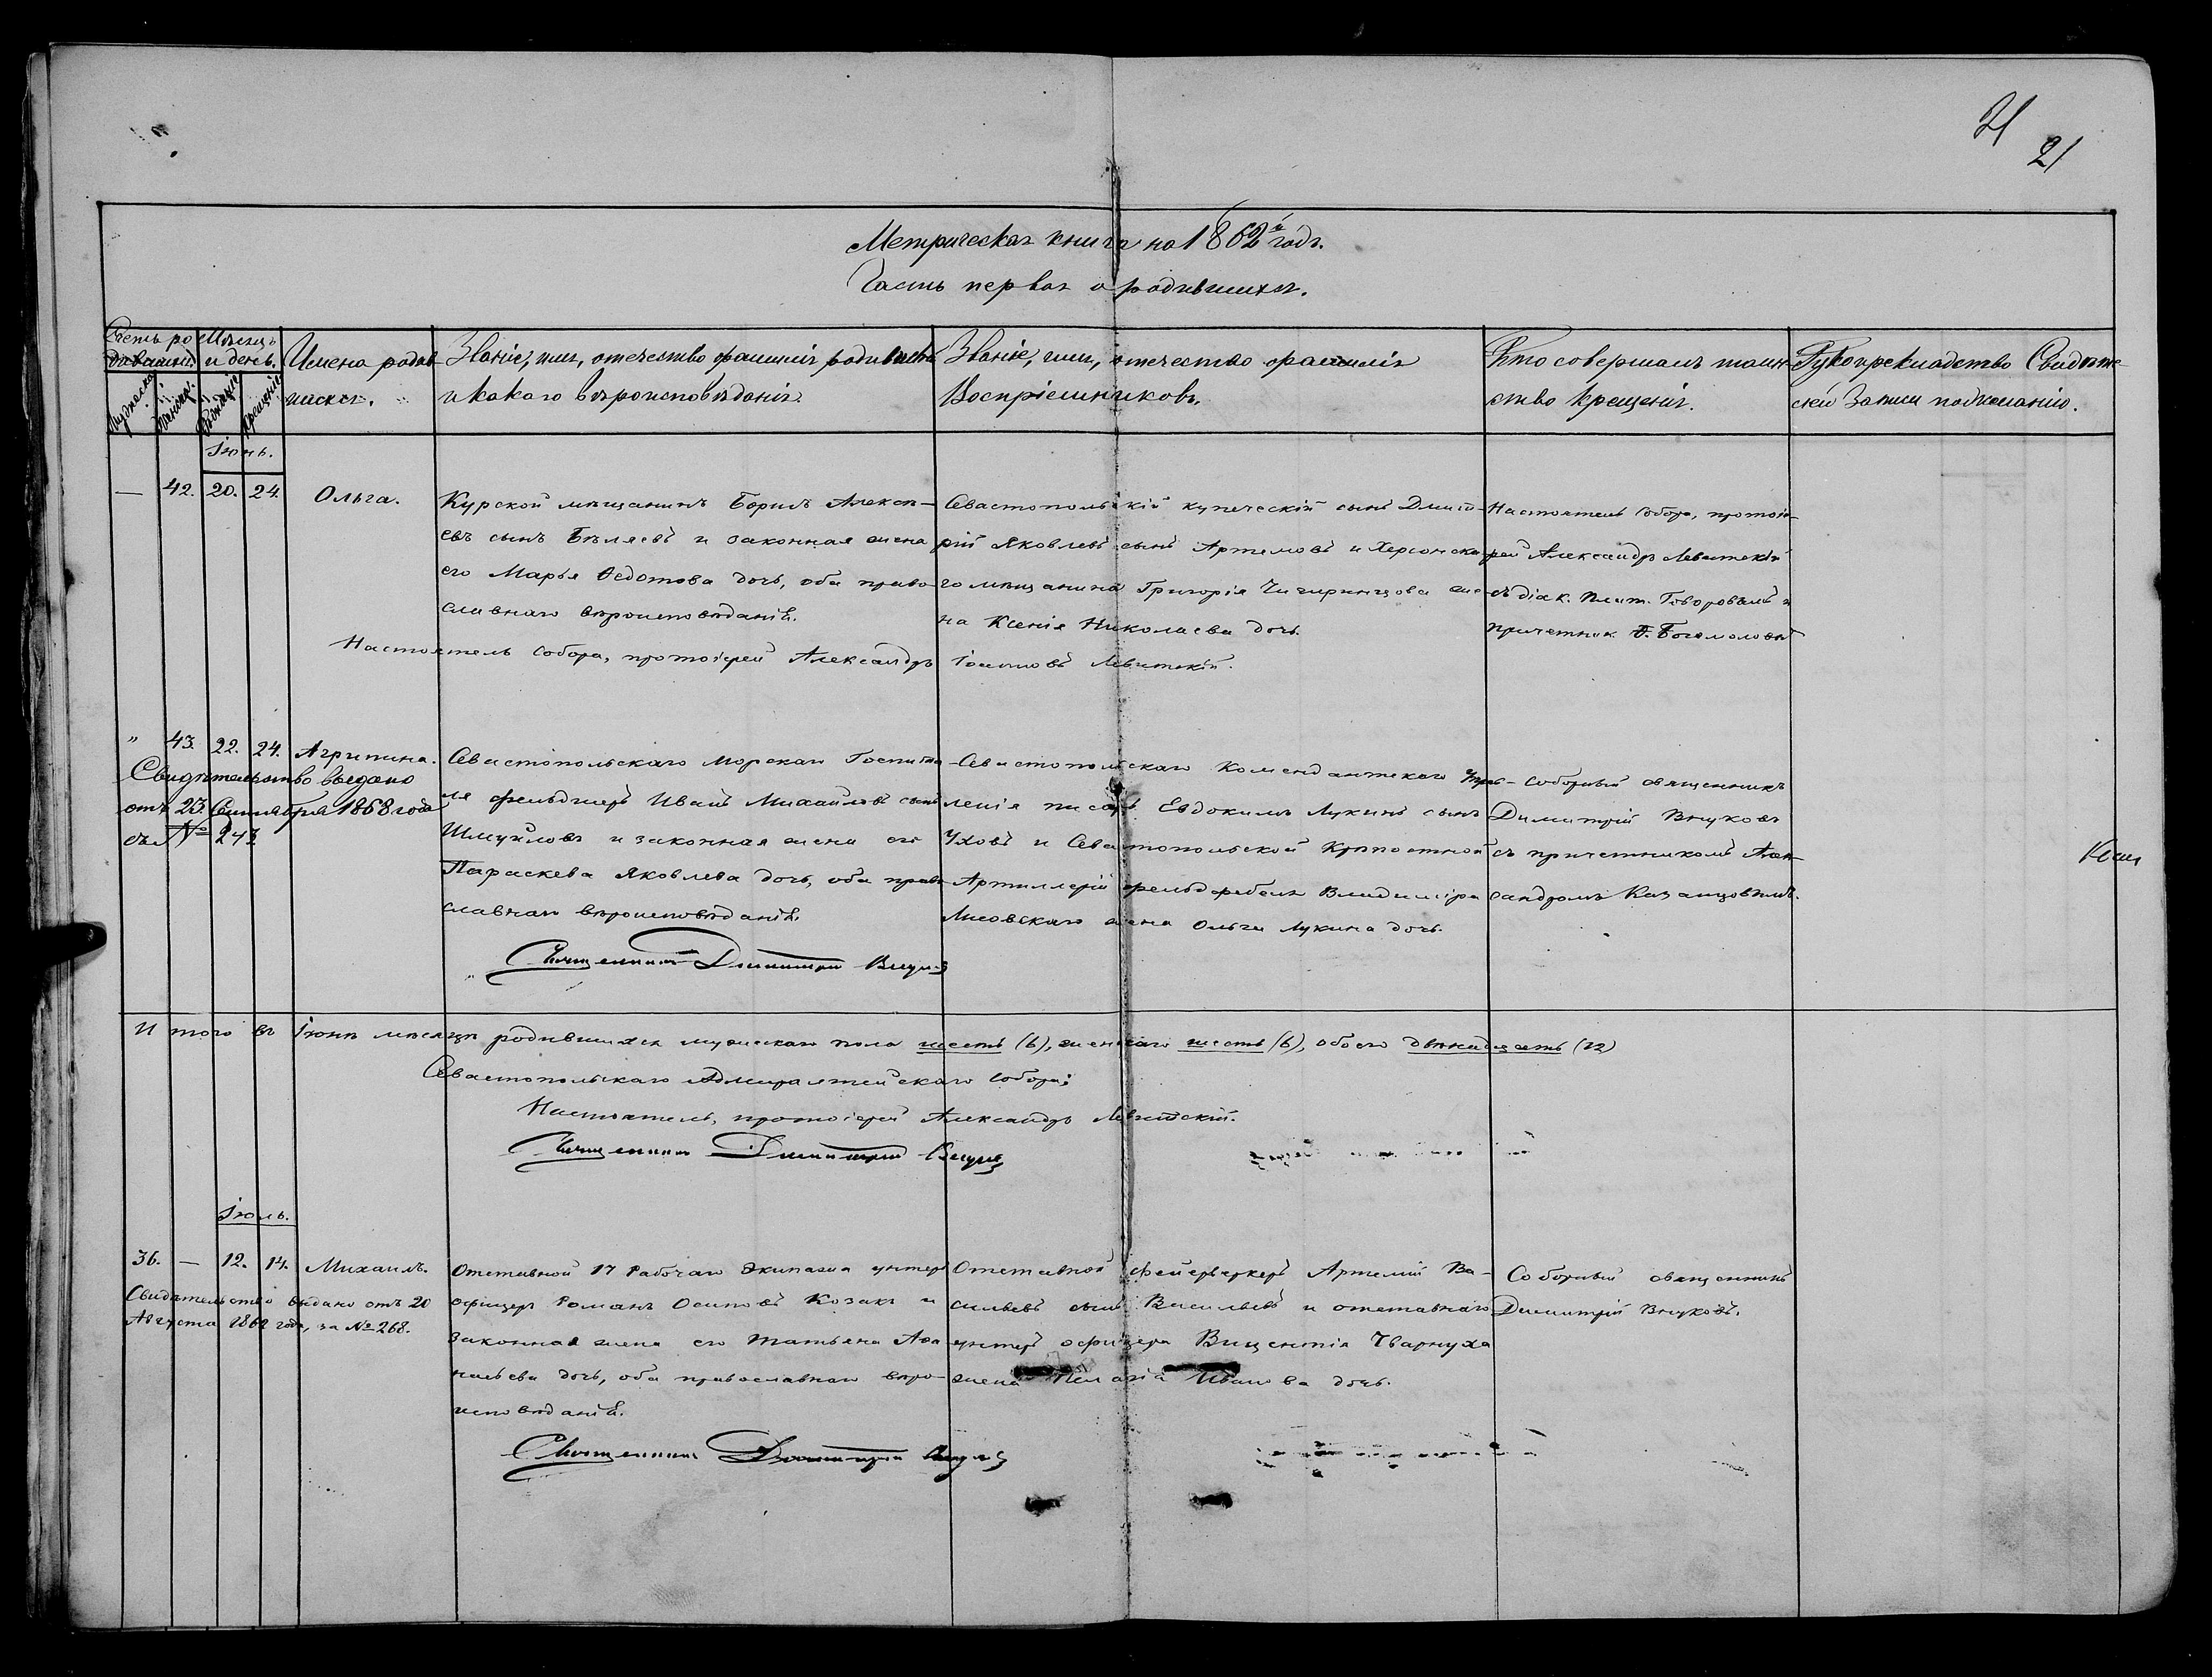 21
21
Метрическая книга на 1862й годъ.
Часть первая о родившихся.
Счетъ родившихся.
Мужеска
Женска.
Мѣсяцъ и день.
Рожденіе
Крещеніе
Имена родив-
шихся.
Званіе, имя, отечество фамилія родителей
и какого вѣроисповѣданія.
Званіе, имя, отечество фамилія
Воспріемниковъ.
Кто совершалъ таин-
ство крещенія.
Рукоприкладство Свидѣте-
лей записи по желанію.
Іюнь.
— 42. 20. 24. Ольга.
Курской мѣщанинъ Борисъ Алексѣ-
евъ сынъ Бѣляевъ и законная жена
его Марья Ѳедотова дочь, оба право-
славнаго вѣроисповѣданія.
Севастопольскій купеческій сынъ Дмит-
рій Яковлевъ сынъ Артемовъ и Херсонска-
го мѣщанина Григорія Чичиринцова же-
на Ксенія Николаева дочь.
Настоятель Собора, протоіе-
рей Александръ Левитскій
съ діак. Плат. Говоровымъ и
причетник. Ѳ. Богомоловымъ
Настоятель Собора, протоіерей Александръ Іоанновъ Левитскій.
" 43. 22. 24. Агрипина.
Свидѣтельство выдано
отъ 23 Сентября 1868 года
съ № 243
Севастопольскаго Морскаго Госпита-
ля фельдшеръ Иванъ Михайловъ сынъ
Шмуйловъ и законная жена его
Параскева Яковлева дочь, оба право-
славнаго вѣроисповѣданія.
Севастопольскаго Комендантскаго Управ-
ленія писарь Евдокимъ Лукинъ сынъ
Уховъ и Севастопольской Крѣпостной
Артиллеріи фельдфебеля Владиміра
Лисовскаго жена Ольга Лукина дочь.
Соборный священникъ
Димитрій Внуковъ
съ причетникомъ Алек-
сандромъ Казанцовымъ.
Священникъ Димитрій Внуковъ
Итого въ Іюнѣ мѣсяцѣ родившихся мужескаго пола шесть (6), женскаго шесть (6), обоего двѣнадцать (12)
Севастопольскаго Адмиралтейскаго Собора:
Настоятель, протоіерей Александръ Левитскій.
Священникъ Димитрій Внуковъ
Іюль.
36. — 12. 14. Михаилъ.
Свидѣтельство выдано отъ 20
Августа 1862 года, за № 268.
Отставной 17 Рабочаго Экипажа унтеръ
офицеръ Романъ Осиповъ Козакъ и
законная жена его Татьяна Афа-
насьева дочь, оба православнаго вѣро-
исповѣданія.
Отставной фейерверкеръ Артемій Ва-
сильевъ сынъ Васильевъ и отставнаго
унтеръ офицера Вицентія Чварнуха
жена Пелагія Иванова дочь.
Соборный священникъ
Димитрій Внуковъ.
Священникъ Димитрій Внуковъ